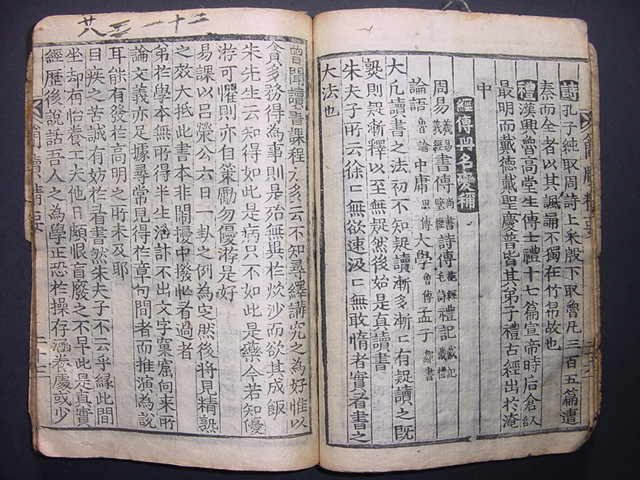 詩孔子純取周詩上采殷下取魯凡三百五篇遭
秦而全者以其諷誦不獨在竹帛故也
禮漢興魯高堂生傳士禮十七篇宣帝時后倉
最明而戴德戴聖慶普皆其弟子禮古經出於淹
中
經傳異名
周易羲易羲經書傳尙書壁經詩傳葩經毛詩禮記戴記戴禮
論語魯論中庸思傳大學曾傳孟子鄒書
大凡讀書之法初不知疑讀漸多漸〻有疑讀之旣
熟則疑漸釋以至無疑然後始是真讀書
朱夫子所云徐〻無欲速汲〻無敢惰者實看書之
大法也
曾聞讀書課程人多云不知尋繹講究之為好惟以
貪多務得為事則是殆無異於炒沙而欲其成飯
朱先生云知得如此是病只不如此是藥今若知優
游可懼則亦自策勵勿優游是好
易課以呂榮公六日一卦之例為定然後將見精熟
之效大抵此書本非閙擾中撥忙看過者
弟於學本無所得半生活計不出文字窠窟向來所
論文義亦是據尋常見得於草句間者而推演為說
耳能有發於高明之所未及耶
目疾之苦誠有妨於看書然朱夫子不云乎緣此閒
坐却有怡養工夫他日頗恨盲廢之不早此是真實
經歷後說話吾人之為學正恐於操存涵養處或少